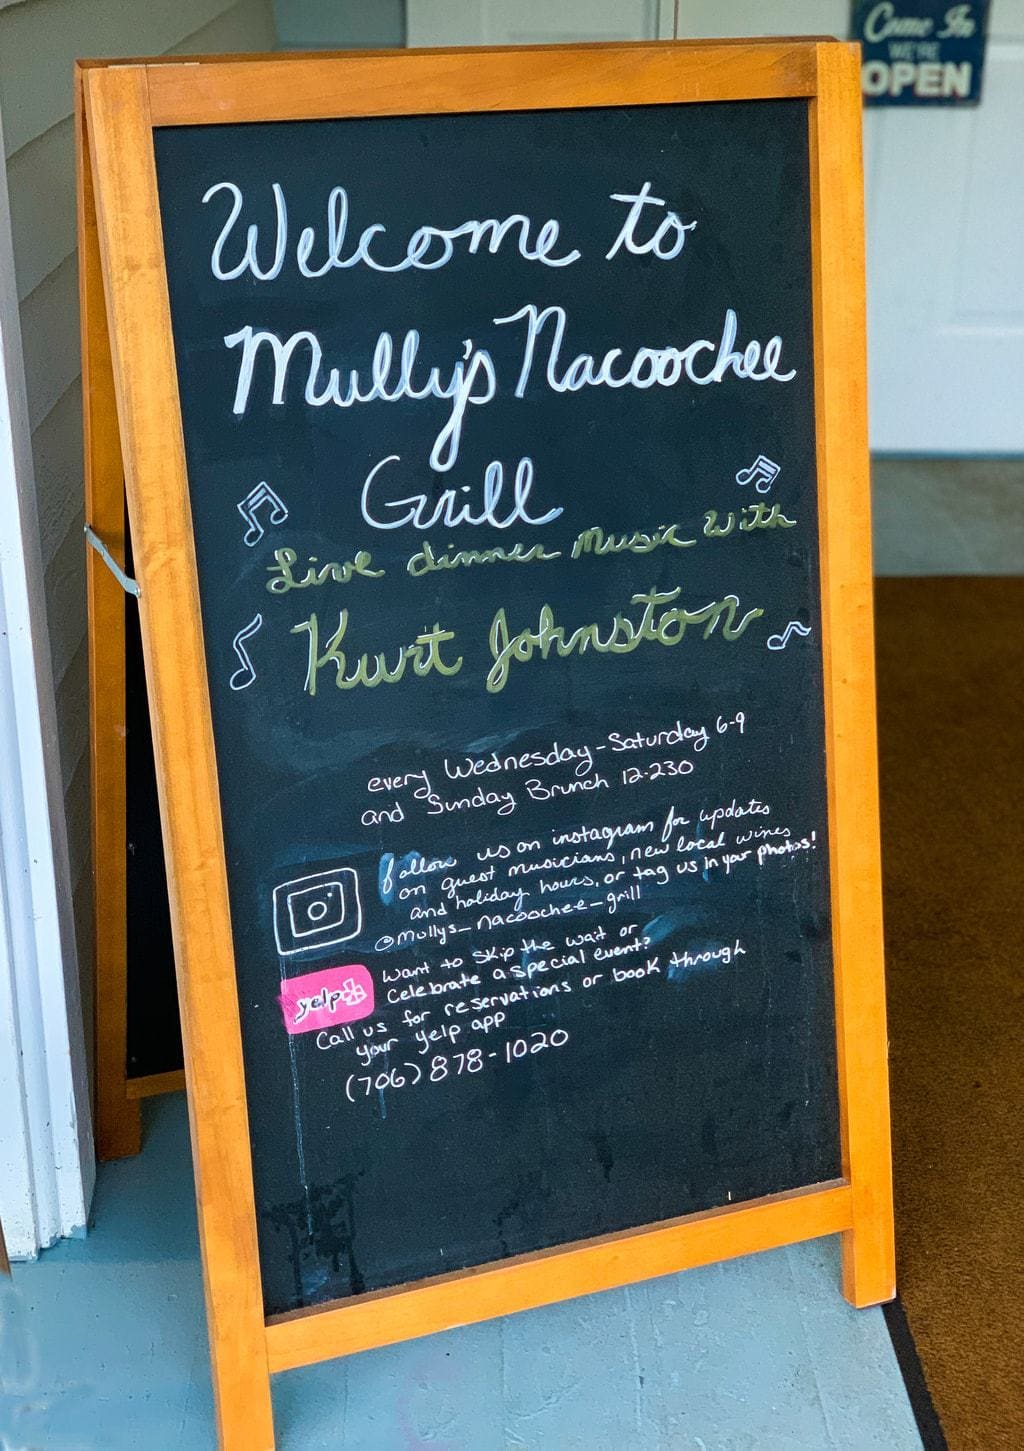 Come In
WE'RE
OPEN
Welcome to
Mully's Nacoochee
Grill
Live dinner music with
Kurt Johnston
every Wednesday-Saturday 6-9
and Sunday Brunch 12-230
follow us on instagram for updates
on guest musicians, new local wines
and holiday hours, or tag us in your photos!
@mullys_nacoochee_grill
Want to skip the wait or
Celebrate a special event?
yelp
Call us for reservations or book through
your yelp app
(706) 878-1020